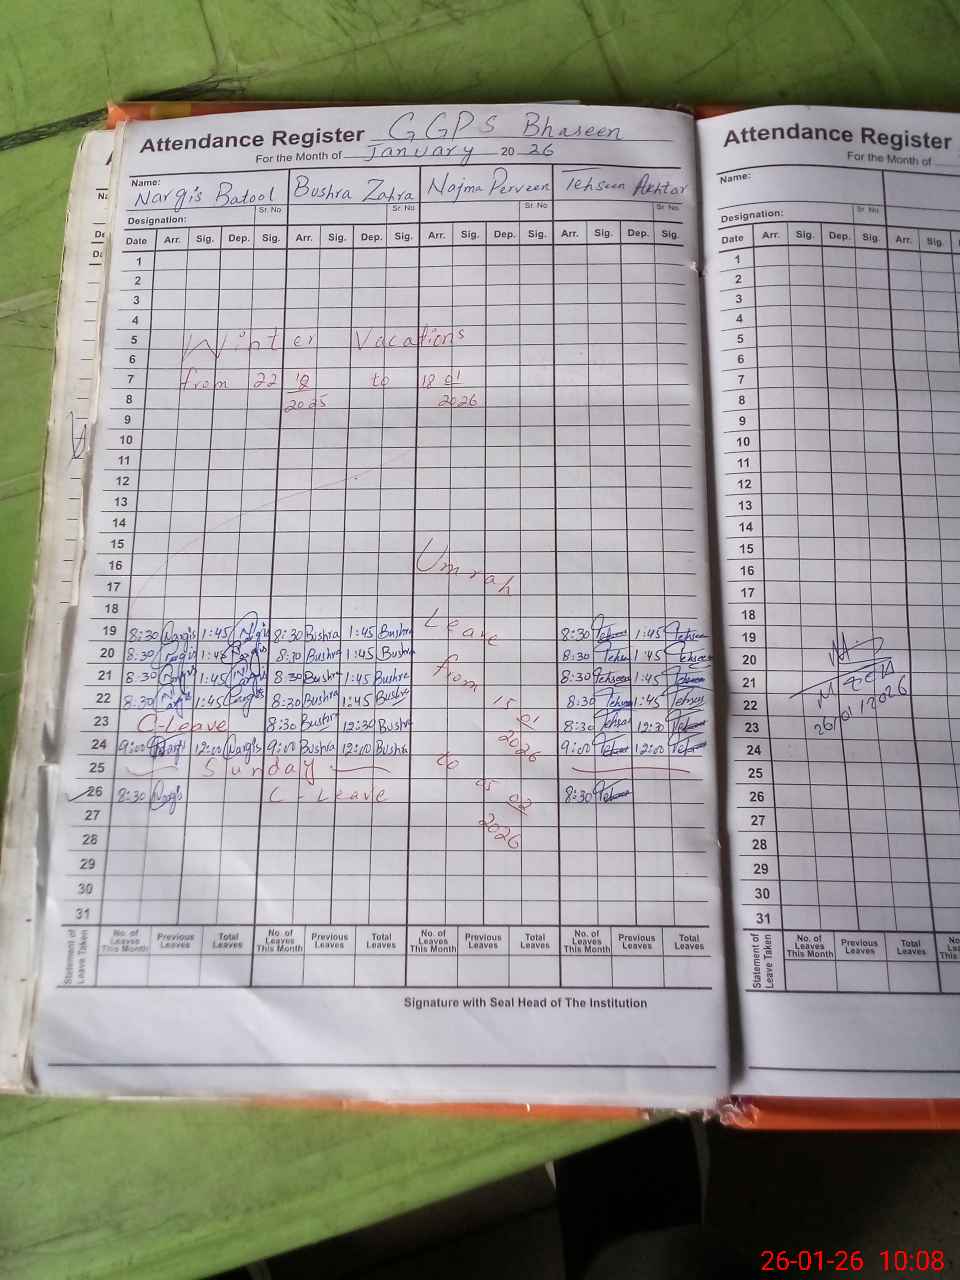 Attendance Register GGPS Bhaseen
For the Month of January 20 26
Name: Nargis Batool Bushra Zahra Najma Perveen Tehseen Akhtar
Sr. No Sr. No Sr. No Sr. No
Designation:
Date Arr. Sig. Dep. Sig. Arr. Sig. Dep. Sig. Arr. Sig. Dep. Sig. Arr. Sig. Dep. Sig.
1
2
3
4
5 Winter Vacations
6
7 from 22 to 18 01
8 2025 2026
9
10
11
12
13
14
15
16 Umrah
17
18
19 8:30 Nargis 1:45 Nargis 8:30 Bushra 1:45 Bushra Leave 8:30 Tehseen 1:45 Tehseen
20 8:30 Nargis 1:45 Nargis 8:30 Bushra 1:45 Bushra 8:30 Tehseen 1:45 Tehseen
21 8:30 Nargis 1:45 Nargis 8:30 Bushra 1:45 Bushra from 8:30 Tehseen 1:45 Tehseen
22 8:30 Nargis 1:45 Nargis 8:30 Bushra 1:45 Bushra 15 8:30 Tehseen 1:45 Tehseen
23 C-Leave 8:30 Bushra 12:30 Bushra 01 8:30 Tehseen 12:30 Tehseen
24 9:00 Nargis 12:00 Nargis 9:00 Bushra 12:00 Bushra 2026 9:00 Tehseen 12:00 Tehseen
25 Sunday to
26 8:30 Nargis C-Leave 05 02 8:30 Tehseen
27 2026
28
29
30
31
Statement of Leave Taken
No. of Leaves This Month Previous Leaves Total Leaves No. of Leaves This Month Previous Leaves Total Leaves No. of Leaves This Month Previous Leaves Total Leaves No. of Leaves This Month Previous Leaves Total Leaves
Signature with Seal Head of The Institution
Attendance Register
For the Month of
Name:
Sr. No
Designation:
Date Arr. Sig. Dep. Sig. Arr. Sig.
1
2
3
4
5
6
7
8
9
10
11
12
13
14
15
16
17
18
19
20
21
22
23 26/01/2026
24
25
26
27
28
29
30
31
Statement of Leave Taken
No. of Leaves This Month Previous Leaves Total Leaves
26-01-26 10:08